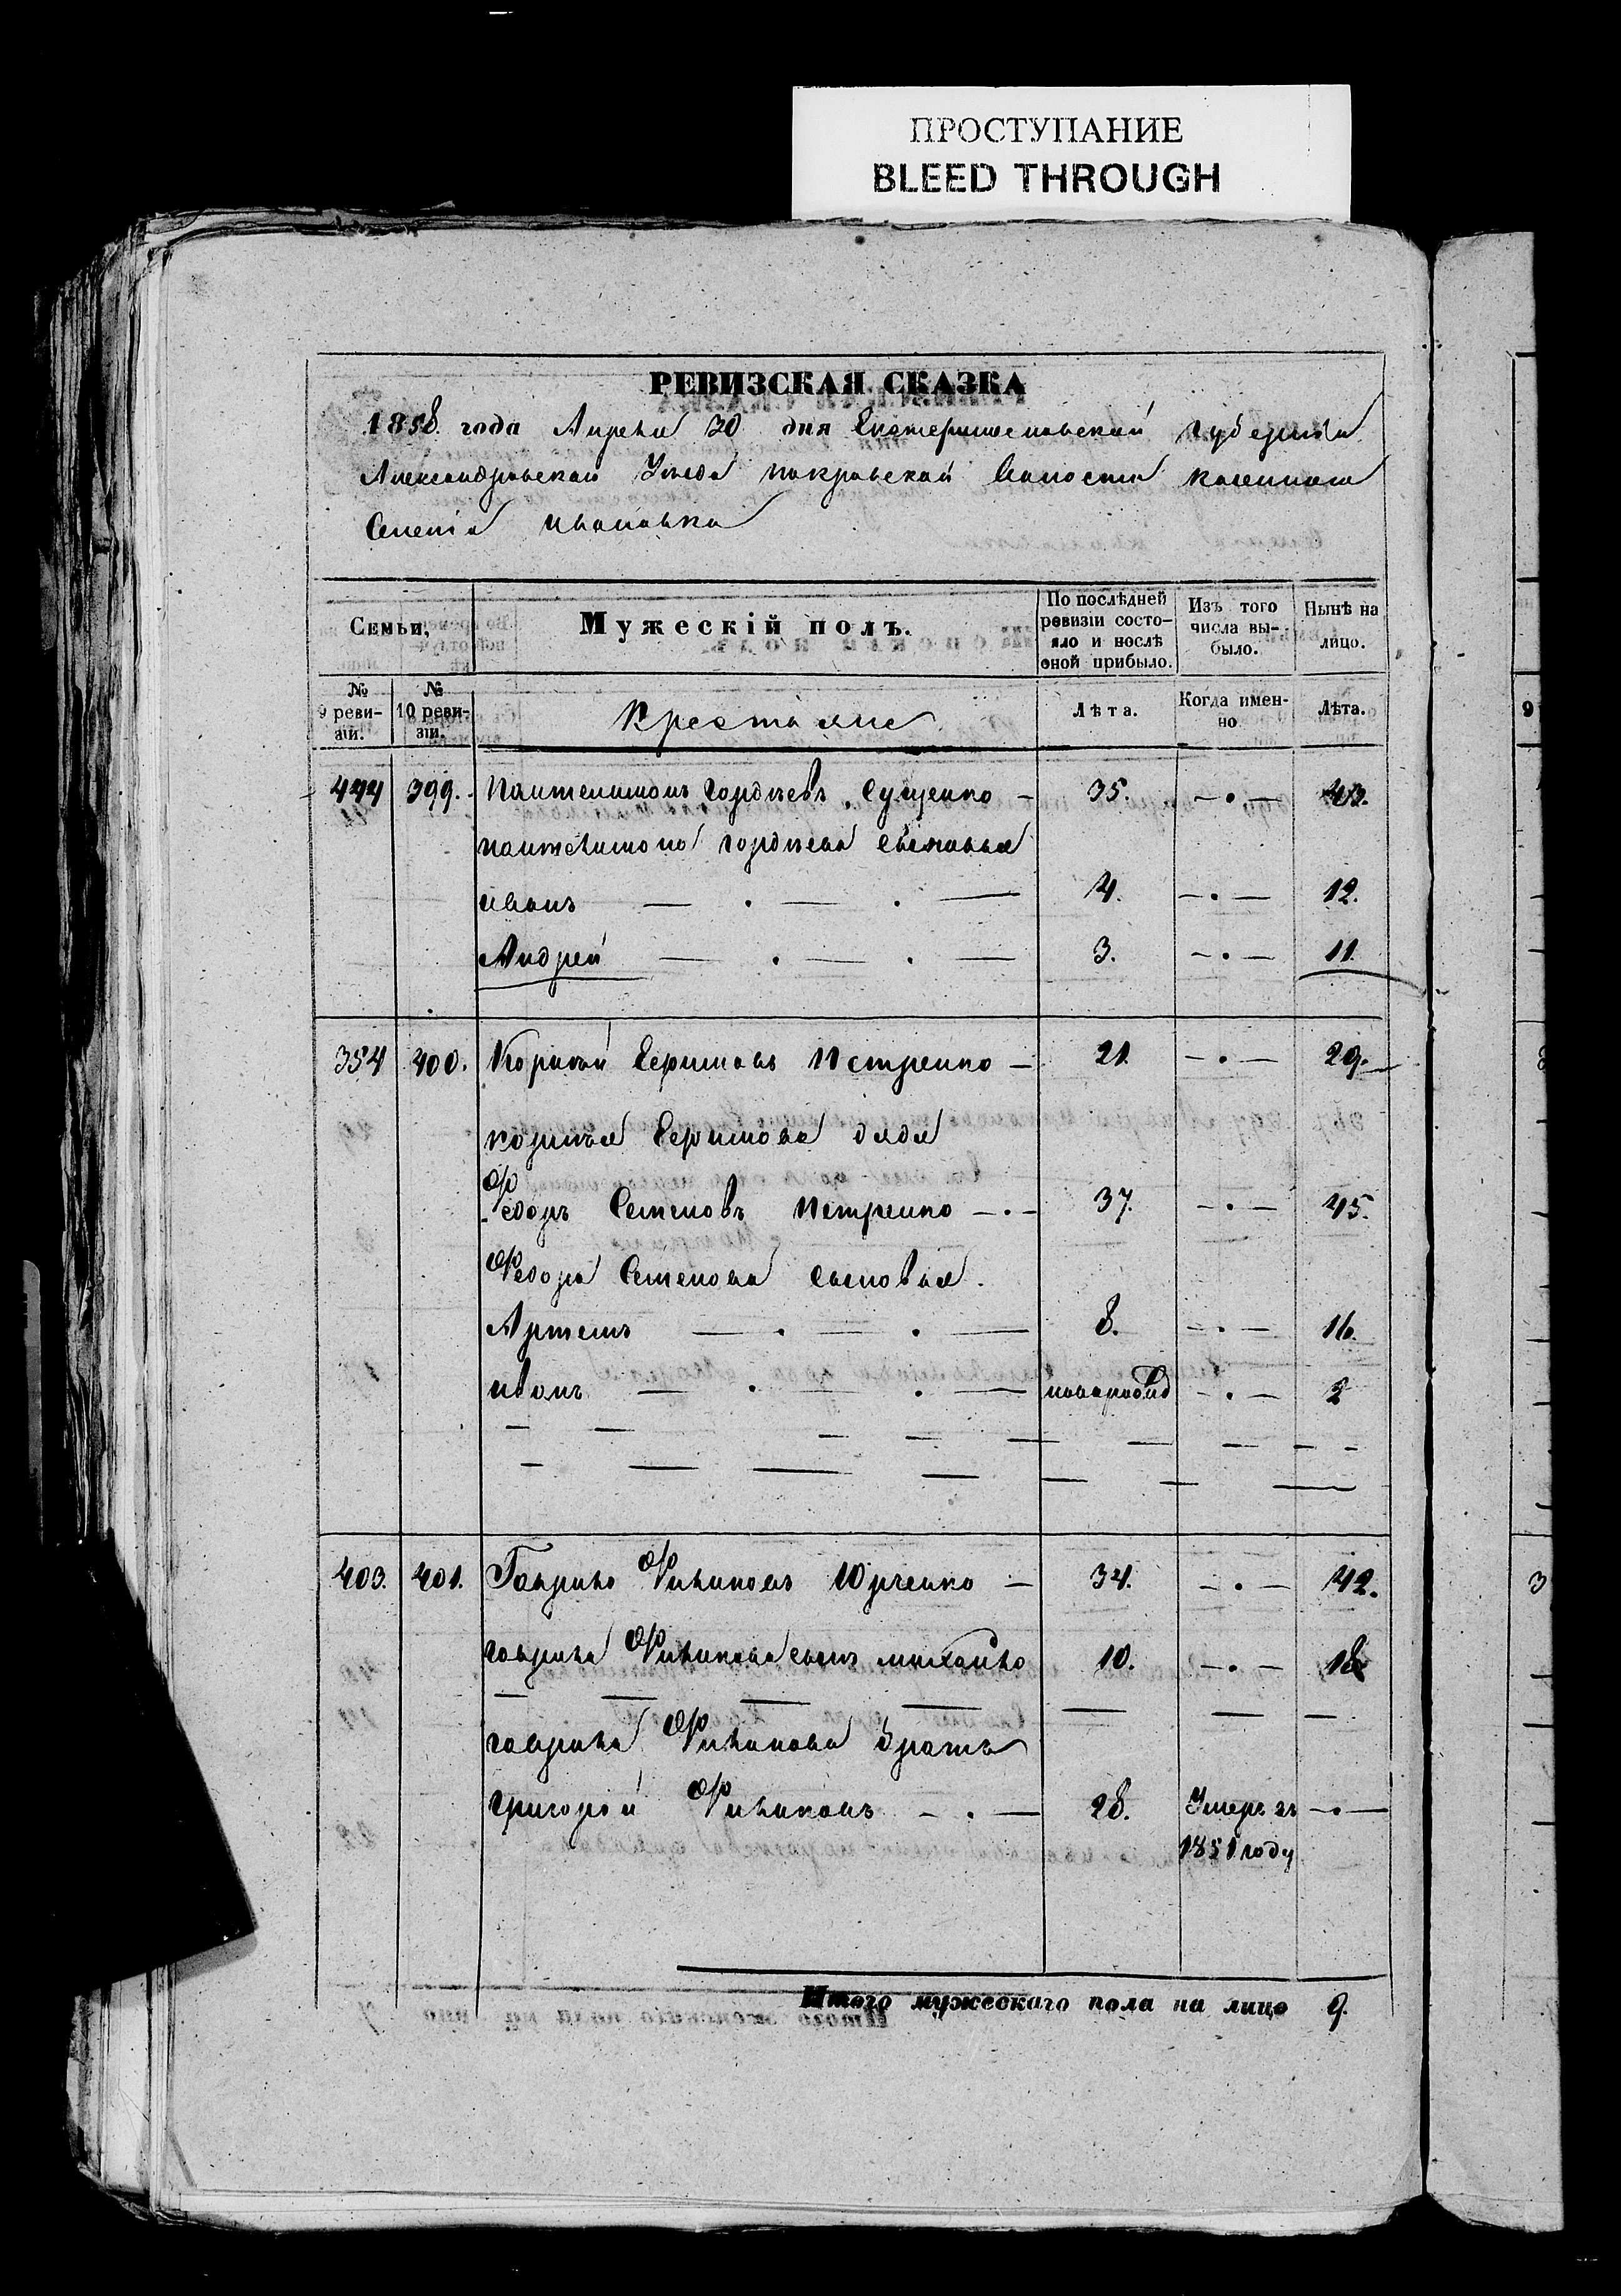 ПРОСТУПАНИЕ
BLEED THROUGH
РЕВИЗСКАЯ СКАЗКА
1858 года Апреля 30 дня Екатеринославской губернии
Александровскаго Уезда покровской Волости казеннаго
Селенія ивановка
Семьи, Мужескій полъ. По послѣдней ревизіи состояло и послѣ оной прибыло. Изъ того числа выбыло. Нынѣ на лицо.
№ 9 ревизіи. № 10 ревизіи. Крестьяне Лѣта. Когда именно Лѣта.
444 399. Пантелимонъ гордѣевъ Сущенко — 35. — . — 43.
пантелимона гордѣева сыновья
иванъ — . — . — 4. — . — 12.
Андрей — . — . — 3. — . — 11
354 400. Корнѣй Ефимовъ Петренко — 21 — . — 29.
корнѣя Ефимова дядя
Федоръ Семеновъ петренко — . — 37. — . — 45.
Федора Семенова сыновья.
Артемъ — . — . — 8. — . — 16.
иванъ — . — . — новорожд — . — 2
403. 401. Гаврило Филиповъ Юрченко — 34. — . — 42.
гаврила Филипова сынъ михайло 10. — . — 18
гаврила Филипова братъ
григорій Филиповъ — . — 28. Умеръ въ — . —
1851 году
Итого мужескаго пола на лицо 9.